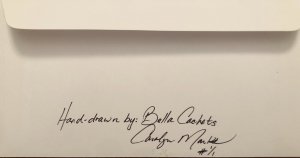 Hand-drawn by: Bella Cachets
Carolyn
#1/1